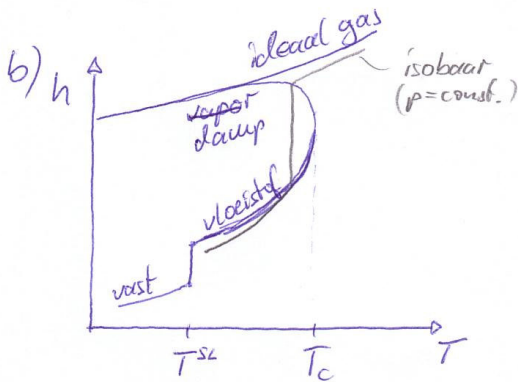 b)
h
ideaal gas
isobaar
(p=const.)
vapor
damp
vloeistof
vast
T^SL
T_c
T